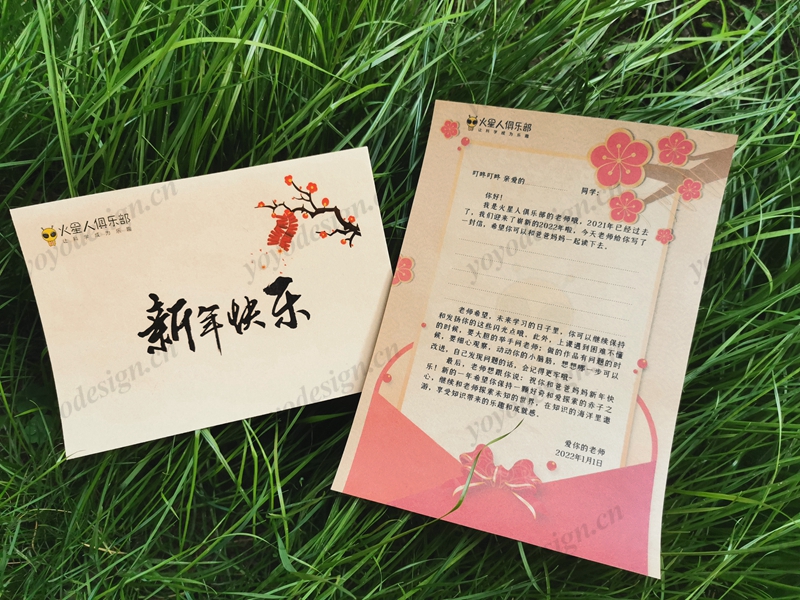 火星人俱乐部
让科学成为乐趣
新年快乐
火星人俱乐部
让科学成为乐趣
叮咚叮咚 亲爱的
同学:
你好!
我是火星人俱乐部的老师哦,2021年已经过去
了,我们迎来了崭新的2022年啦,今天老师给你写了
一封信,希望你可以和爸爸妈妈一起读下去。
老师希望,未来学习的日子里,你可以继续保持
和发扬你的这些闪光点哦。此外,上课遇到困难不懂
的时候,要大胆的举手问老师;做的作品有问题的时
候,要细心观察,动动你的小脑筋,想想哪一步可以
改进,自己发现问题的话,会记得更牢哦。
最后,老师想跟你说:祝你和爸爸妈妈新年快
乐!新的一年希望你保持一颗好奇和爱探索的赤子之
心,继续和老师探索未知的世界,在知识的海洋里遨
游,享受知识带来的乐趣和成就感。
爱你的老师
2022年1月1日
yoyodesign.cn
yoyodesign.cn
yoyodesign.cn
yoyodesign.cn
yoyodesign.cn